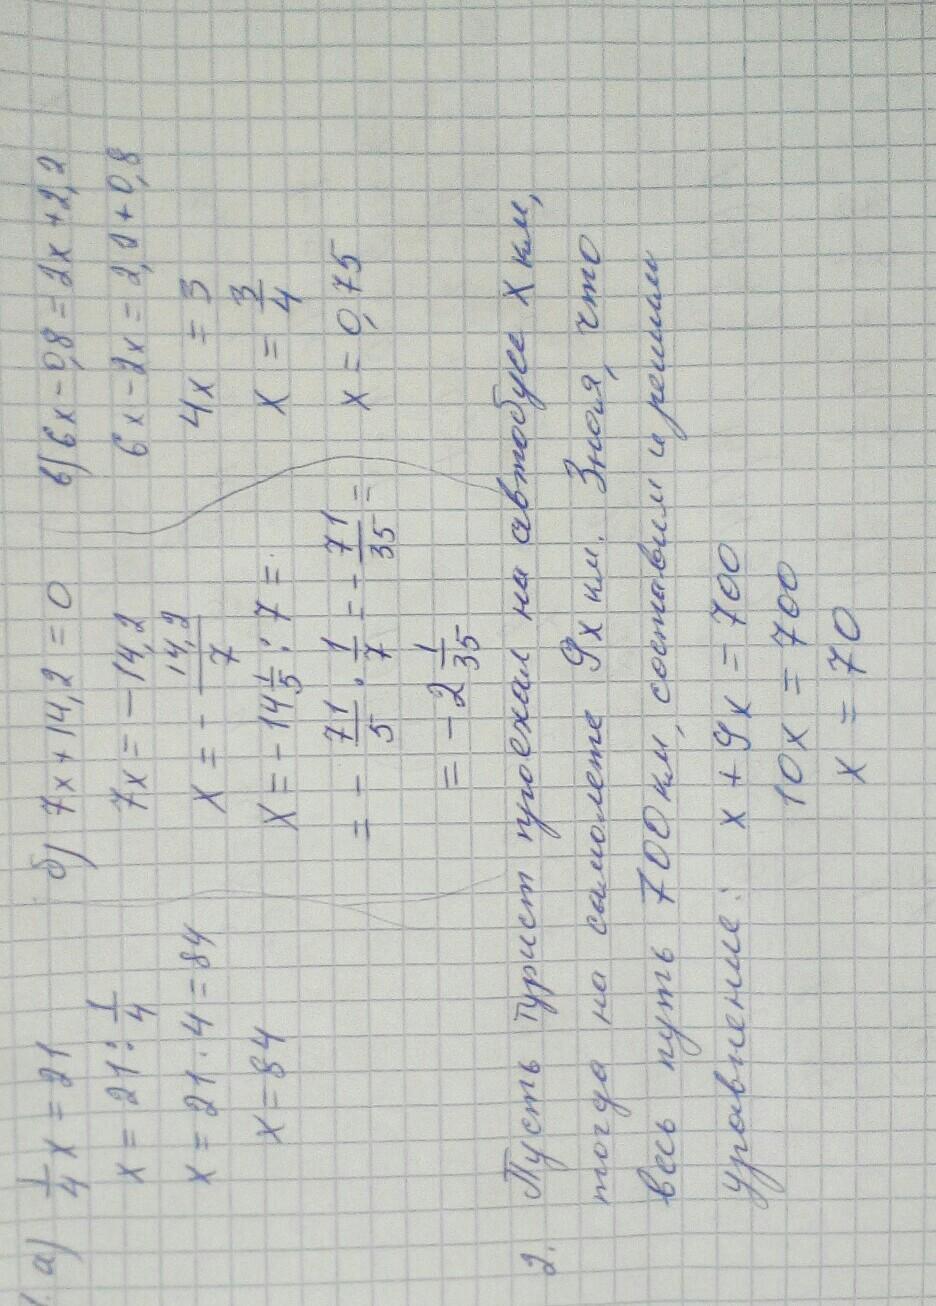 1. а) 1/4 x = 21
x = 21 : 1/4
x = 21 · 4 = 84
x = 84
б) 7x + 14,2 = 0
7x = - 14,2
x = - 14,2/7
x = - 14 1/5 : 7 =
= - 71/5 · 1/7 = - 71/35 =
= - 2 1/35
в) 6x - 0,8 = 2x + 2,2
6x - 2x = 2,2 + 0,8
4x = 3
x = 3/4
x = 0,75
2. Пусть турист проехал на автобусе x км,
тогда на самолете 9x км. Зная, что
весь путь 700 км, составим и решим
уравнение: x + 9x = 700
10x = 700
x = 70